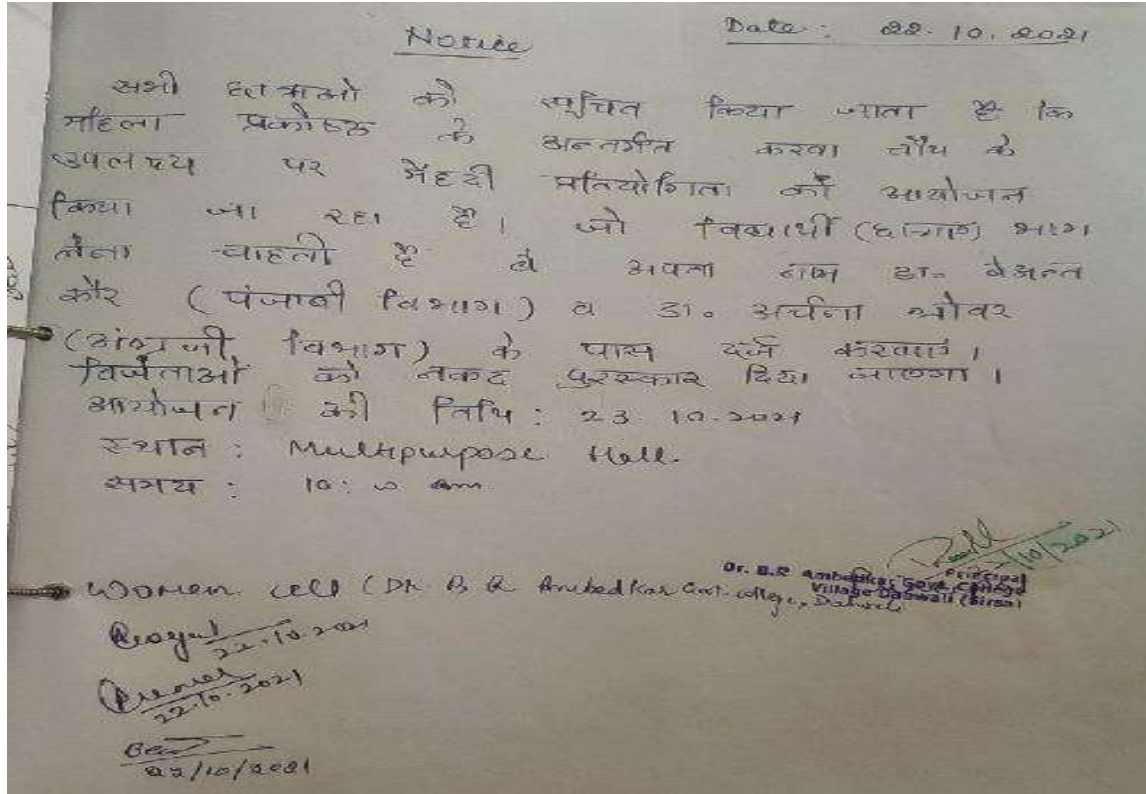 Notice
Date : 22.10.2021
सभी छात्राओ को सूचित किया जाता है कि
महिला प्रकोष्ठ के अन्तर्गत करवा चौथ के
उपलक्ष्य पर मेंहदी प्रतियोगिता को आयोजन
किया जा रहा है। जो विद्यार्थी (छात्राएं) भाग
लेना चाहती है वे अपना नाम डा॰ बेअन्त
कौर (पंजाबी विभाग) व डा॰ अर्चना ग्रोवर
(अंग्रजी विभाग) के पास दर्ज करवाएं।
विजेताओं को नकद पुरस्कार दिया जाएगा।
आयोजन की तिथि : 23.10.2021
स्थान : Multipurpose Hall.
समय : 10: am
/10/2021
Principal
Dr. B.R Ambedkar Govt. College
Village Dabwali (Sirsa)
Women cell (Dr. B R Ambedkar Govt. college, Dabwali
22.10.2021
22.10.2021
22/10/2021